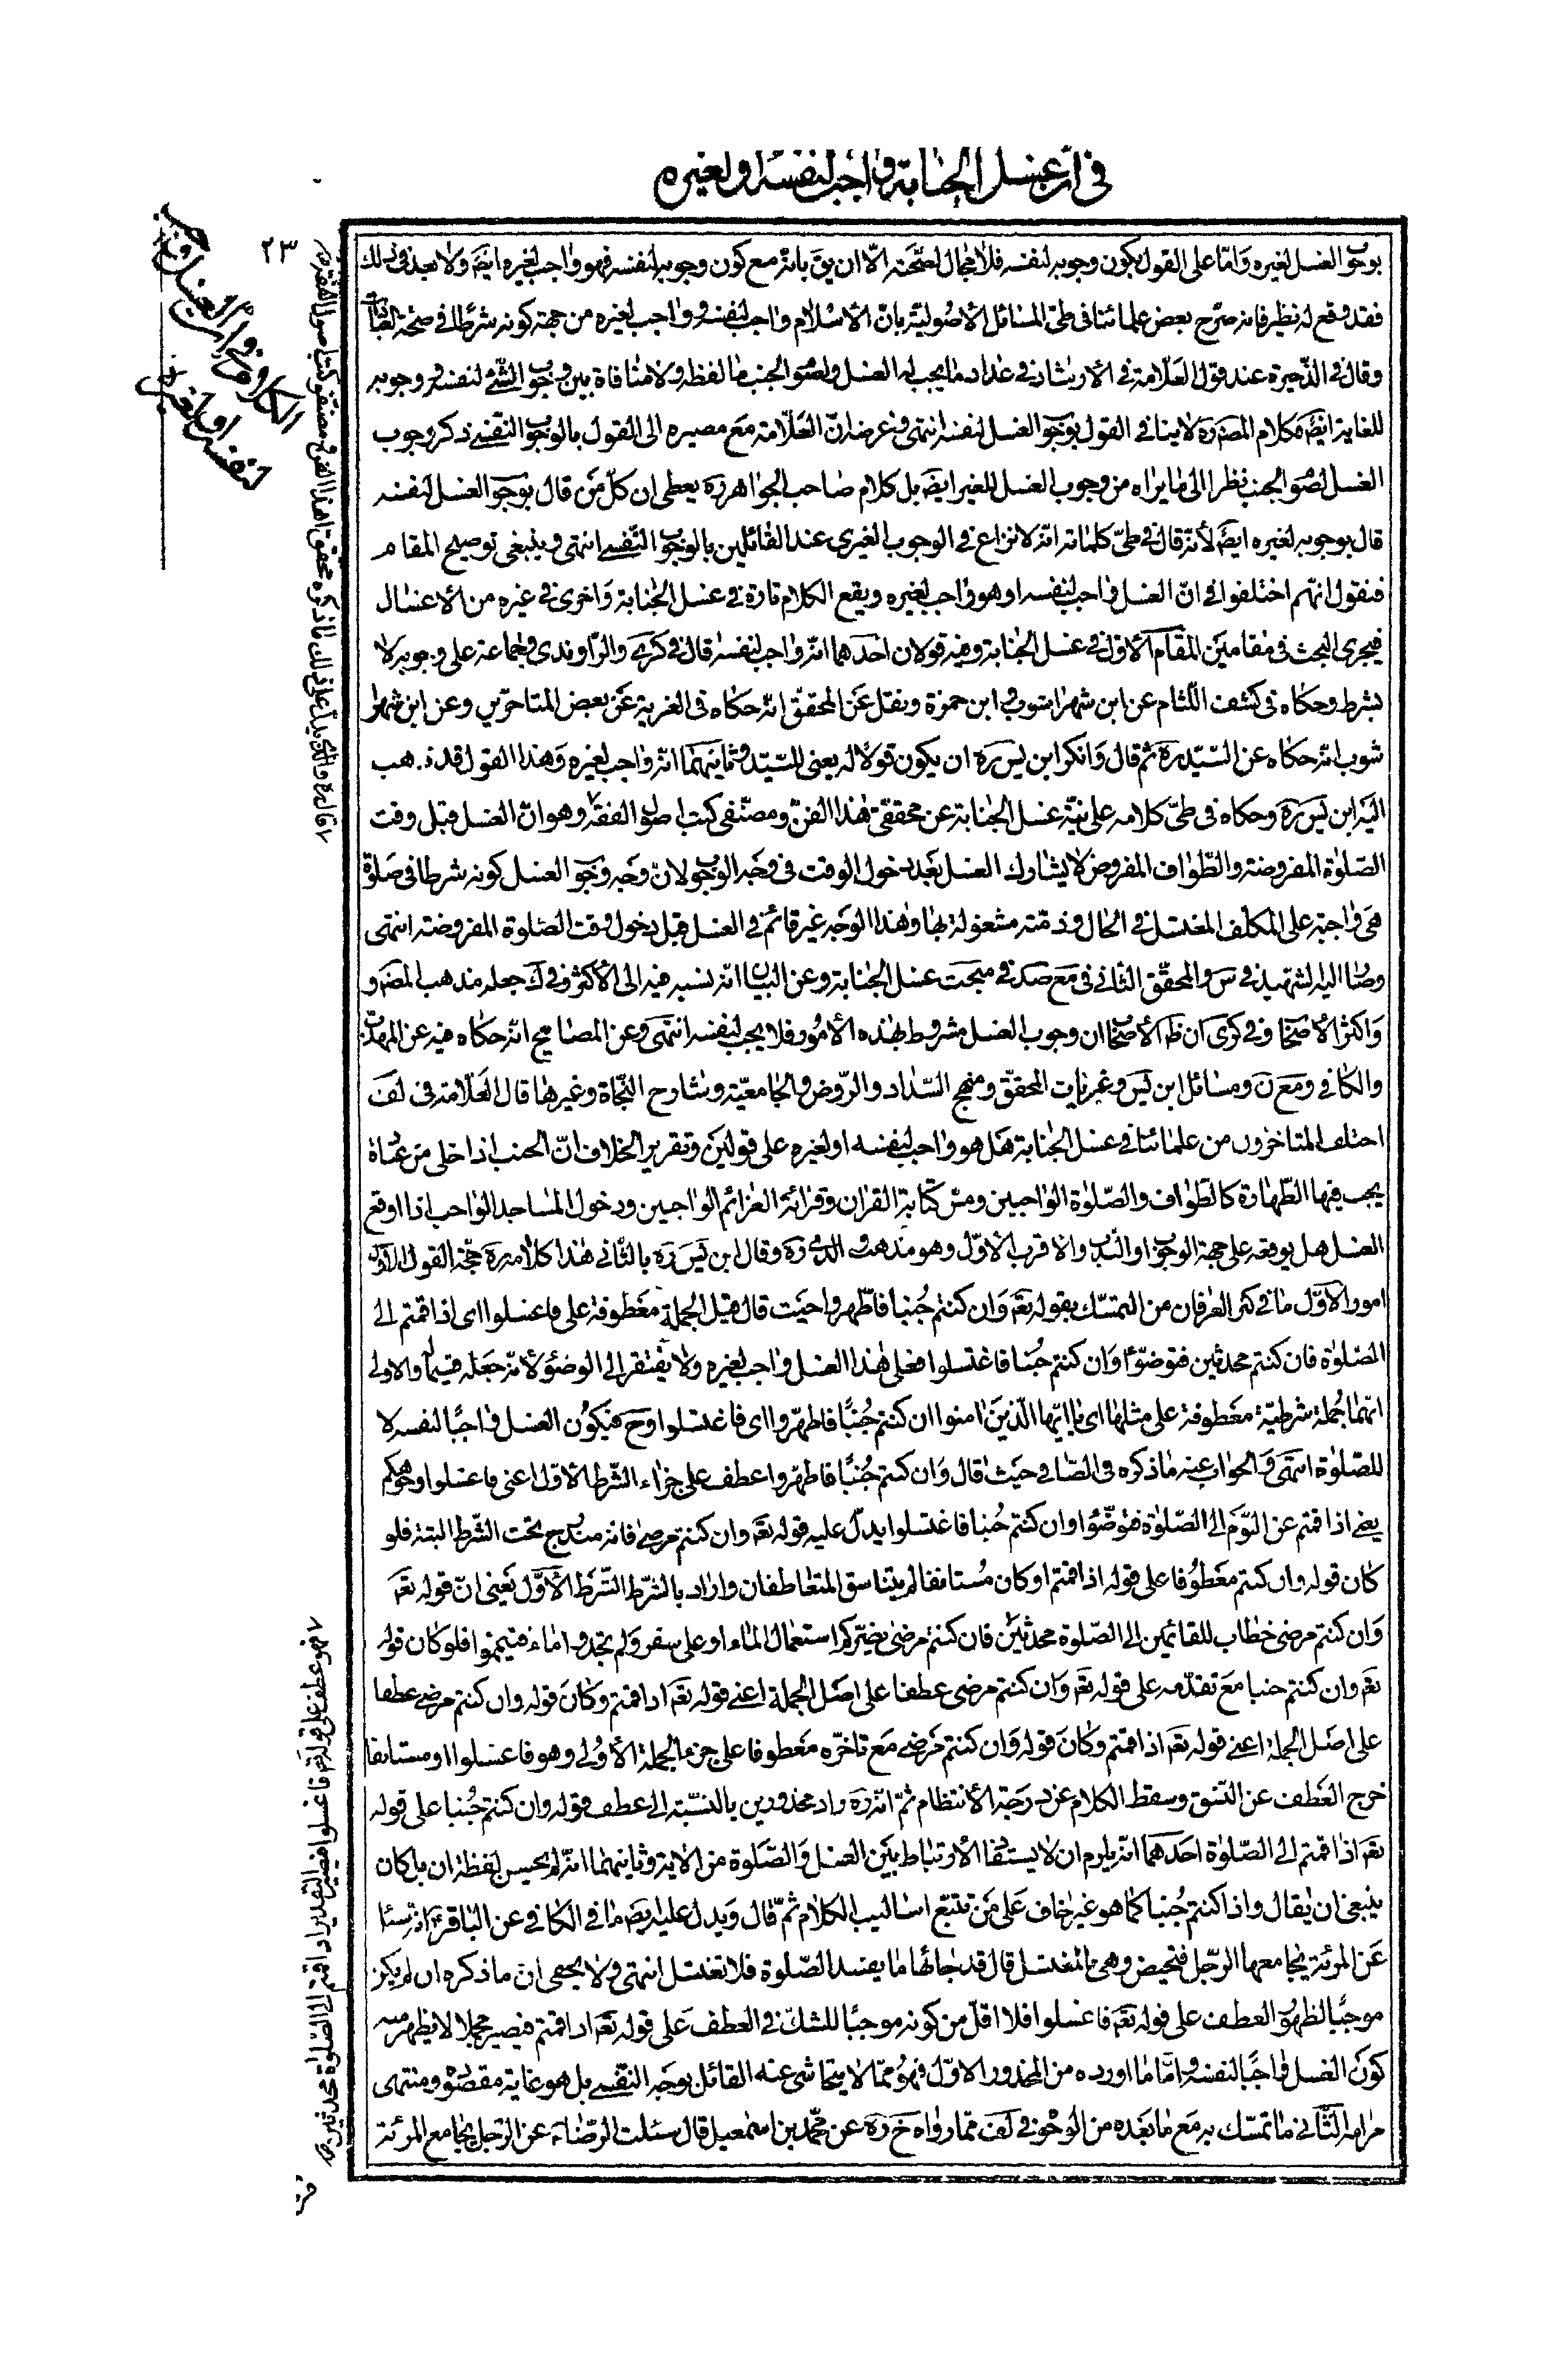 في ان غسل الجنابة واجب لنفسه او لغيره
٢٣
الكلام في ان الغسل واجب
لنفسه او لغيره
بوجوب الغسل لغيره وامّا على القول بكون وجوبه لنفسه فلا مجال لصحته الّا ان يق بانه مع كون وجوبه لنفسه فهو واجب لغيره ايضا ولا بعد في ذلك
فقد وقع له نظير فانه صرّح بعض علمائنا في طيّ المسائل الأصوليّة بانّ الأسلام واجب لنفسه وواجب لغيره من جهة كونه شرطا في صحّة العبادات
وقال في الذّخيرة عند قول العلّامة في الأرشاد في عداد ما يجب له الغسل ولصوم الجنب ما لفظه ولا منافاة بين وجوب الشّئ لنفسه ووجوبه
للغاية ايضا فكلام المصرّه لا ينافي القول بوجوب الغسل لنفسه انتهى وغرضه انّ العلّامة مع مصيره الى القول بالوجوب النّفسي ذكر وجوب
الغسل لصوم الجنب نظرا الى ما يراه من وجوب الغسل للغير ايضا بل كلام صاحب الجواهر ره يعطي ان كلّ من قال بوجوب الغسل لنفسه
قال بوجوبه لغيره ايضا لأنّه قال في طيّ كلماته انّه لا نزاع في الوجوب الغيري عند القائلين بالوجوب النّفسي انتهى وينبغي توضيح المقام
فنقول انّهم اختلفوا في انّ الغسل واجب لنفسه او هو واجب لغيره ويقع الكلام تارة في غسل الجنابة واخرى في غيره من الأغسال
فيجرى البحث في مقامين المقام الأوّل في غسل الجنابة وفيه قولان احدهما انّه واجب لنفسه قال في كرى والرّاوندي وجماعة على وجوبه لا
بشرط وحكاه في كشف اللّثام عن ابن شهراشوب وابن حمزة ونقل عن المحقّق انّه حكاه في الغرية عن بعض المتأخّرين وعن ابن شهرا
شوب انّه حكاه عن السّيّد ره ثم قال وانكر ابن يس ره ان يكون قولا له يعنى للسّيّد وثانيهما انّه واجب لغيره وهذا القول قد ذهب
اليه ابن يس ره وحكاه في طىّ كلامه على نيّة غسل الجنابة عن محققي هذا الفنّ ومصنّفي كتب اصول الفقه وهو انّ الغسل قبل وقت
الصّلوة المفروضة والطّواف المفروض لا يشارك الغسل بعد دخول الوقت في وجه الوجوب لانّ وجه وجوب الغسل كونه شرطا في صلوة
هي واجبة على المكلّف المغتسل في الحال وذمّته مشغولة بها وهذا الوجه غير قائم في الغسل قبل دخول وقت الصّلوة المفروضة انتهى
وصار اليه الشّهيد في س والمحقّق الثّاني في مع صد في مبحث غسل الجنابة وعن البيان انّه نسبه فيه الى الأكثر وفي ك جعله مذهب المصره و
واكثر الأصحاب وفي كرى ان ظ الأصحاب ان وجوب الغسل مشروط بهذه الأمور فلا يجب لنفسه انتهى وعن المصابيح انّه حكاه فيه عن المهذب
والكافي ومع ن ومسائل ابن يس وغريات المحقّق ومنهج السّداد والرّوض والجامعيّة وشارح النّجاة وغيرها قال العلّامة في لف
اختلف المتأخرون من علمائنا في غسل الجنابة هل هو واجب لنفسه او لغيره على قولين وتقرير الخلاف انّ الجنب اذا خلى من عبادة
يجب فيها الطّهارة كالطّواف والصّلوة الواجبين ومسّ كتابة القرآن وقرائة العزائم الواجبين ودخول المساجد الواجب اذا اوقع
الغسل هل يوقعه على جهة الوجوب او النّدب والاقرب الاوّل وهو مذهب والدي ره وقال ابن يس ره بالثّاني هذا كلامه ره حجّة القول الاوّل
امور الأوّل ما في كنز العرفان من التمسّك بقوله تعه وان كنتم جُنبا فاطّهروا حيث قال قيل الجملة معطوفة على فاغسلوا اى اذا قمتم الى
الصّلوة فان كنتم محدثين فتوضّؤا وان كنتم جنبا فاغتسلوا فعلى هذا الغسل واجب لغيره ولا يفتقر الى الوضوء لأنّه جعله قسيما والاولى
انّها جملة شرطيّة معطوفة على مثلها اى يا ايّها الّذين امنوا ان كنتم جُنُبًا فاطهّروا اى فاغتسلوا وح فيكون الغسل واجبًا لنفسه لا
للصّلوة انتهى والجواب عنه ما ذكره في الصّافي حيث قال وان كنتم جُنُبًا فاطهّروا عطف على جزاء الشّرط الأوّل اعنى فاغسلوا وجوهكم
يعنى اذا قمتم عن النّوم الى الصّلوة فتوضّؤا وان كنتم جُنبا فاغتسلوا يدلّ عليه قوله تعه وان كنتم مرضى فانه مندرج تحت الشّرط البتة فلو
كان قوله وان كنتم معطوفا على قوله اذا قمتم او كان مستأنفا لم يتناسق المتعاطفان واراد بالشّرط الشّرط الأوّل يعنى انّ قوله تعه
وان كنتم مرضى خطاب للقائمين الى الصّلوة محدثين فان كنتم مرضى يضرّكم استعمال الماء او على سفر ولم تجدوا ماء فتيمّموا فلو كان قوله
تعه وان كنتم جنبا مع تقدّمه على قوله تعه وان كنتم مرضى عطفا على اصل الجملة اعني قوله تعه اذا قمتم وكان قوله وان كنتم مرضى عطفا
على اصل الجملة اعني قوله تعه اذا قمتم وكان قوله وان كنتم مرضى مع تاخّره معطوفا على جزء الجملة الأولى وهو فاغسلوا او مستانفا
خرج العطف عن النّسق وسقط الكلام عن درجة الأنتظام ثمّ انّه ره زاد محذورين بالنّسبة الى عطف قوله وان كنتم جُنبا على قوله
تعه اذا قمتم الى الصّلوة احدهما انّه يلزم ان لا يستفاد الأرتباط بين الغسل والصّلوة من الأية وثانيهما انّه لم يحسن لفظة ان بل كان
ينبغي ان يقال واذا كنتم جُنبا كما هو غير خاف على من تتبّع اساليب الكلام ثمّ قال ويدل عليه ايضا ما في الكافي عن الباقر ع انه سئل
عن المرئة يجامعها الرّجل فتحيض وهي في المغتسل قال قد جائها ما يفسد الصّلوة فلا تغتسل انتهى ولا يخفى انّ ما ذكره ان لم يكن
موجبًا لظهور العطف على قوله تعه فاغسلوا فلا اقلّ من كونه موجبًا للشكّ في العطف على قوله تعه اذا قمتم فيصير مجملا لا يظهر منه
كون الغسل واجبًا لنفسه وامّا ما اورده من المحذور الاوّل فهو ممّا لا يتحاشى عنه القائل بوجوبه النّفسي بل هو غاية مقصوده ومنتهى
مرامه الثّاني ما تمسّك به مع ما بعده من الوجوه في لف ممّا رواه خ ره عن محمّد بن اسمعيل قال سئلت الرّضا ع عن الرّجل يجامع المرئة